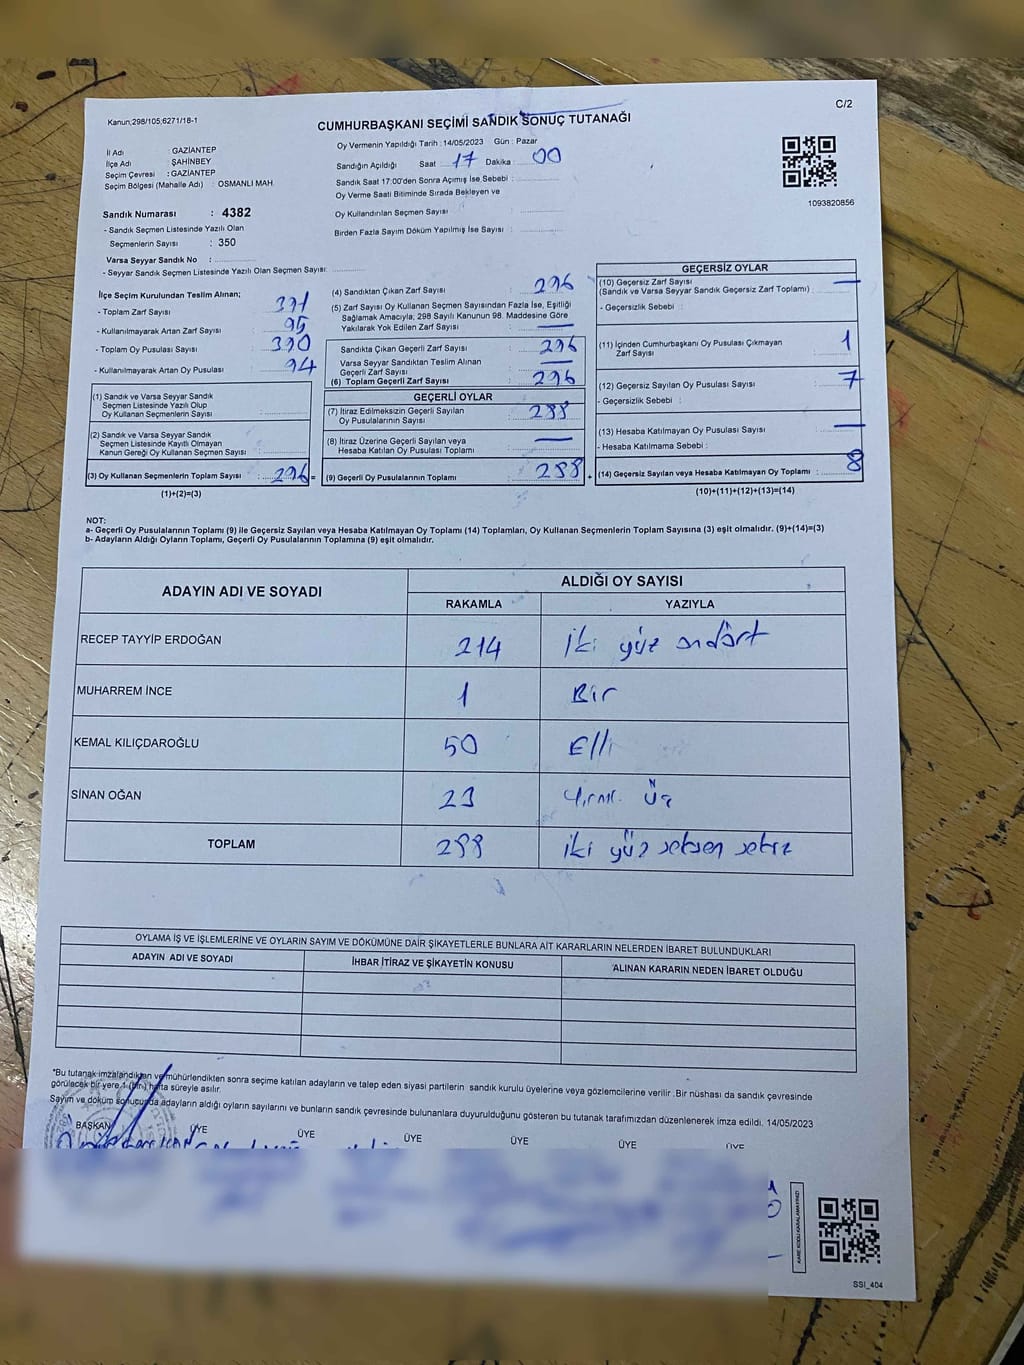 C/2
Kanun;298/105,6271/18-1
CUMHURBAŞKANI SEÇİMİ SANDIK SONUÇ TUTANAĞI
Oy Vermenin Yapıldığı Tarih : 14/05/2023 Gün : Pazar
İl Adı : GAZİANTEP
İlçe Adı : ŞAHİNBEY
Seçim Çevresi : GAZİANTEP
Seçim Bölgesi (Mahalle Adı) : OSMANLI MAH.
Sandığın Açıldığı Saat 17 Dakika 00
Sandık Saat 17:00'den Sonra Açımış İse Sebebi :
Oy Verme Saati Bitiminde Sırada Bekleyen ve
Oy Kullandırılan Seçmen Sayısı :
Birden Fazla Sayım Döküm Yapılmış İse Sayısı :
1093820856
Sandık Numarası : 4382
- Sandık Seçmen Listesinde Yazılı Olan
Seçmenlerin Sayısı : 350
Varsa Seyyar Sandık No :
- Seyyar Sandık Seçmen Listesinde Yazılı Olan Seçmen Sayısı:
İlçe Seçim Kurulundan Teslim Alınan;
- Toplam Zarf Sayısı : 391
- Kullanılmayarak Artan Zarf Sayısı : 95
- Toplam Oy Pusulası Sayısı : 390
- Kullanılmayarak Artan Oy Pusulası : 94
(1) Sandık ve Varsa Seyyar Sandık
Seçmen Listesinde Yazılı Olup
Oy Kullanan Seçmenlerin Sayısı :
(2) Sandık ve Varsa Seyyar Sandık
Seçmen Listesinde Kayıtlı Olmayan
Kanun Gereği Oy Kullanan Seçmen Sayısı :
(3) Oy Kullanan Seçmenlerin Toplam Sayısı : 296 =
(1)+(2)=(3)
(4) Sandıktan Çıkan Zarf Sayısı : 296
(5) Zarf Sayısı Oy Kullanan Seçmen Sayısından Fazla İse, Eşitliği
Sağlamak Amacıyla, 298 Sayılı Kanunun 98. Maddesine Göre
Yakılarak Yok Edilen Zarf Sayısı : —
Sandıkta Çıkan Geçerli Zarf Sayısı : 296
Varsa Seyyar Sandıktan Teslim Alınan
Geçerli Zarf Sayısı : —
(6) Toplam Geçerli Zarf Sayısı : 296
GEÇERLİ OYLAR
(7) İtiraz Edilmeksizin Geçerli Sayılan
Oy Pusulalarının Sayısı : 288
(8) İtiraz Üzerine Geçerli Sayılan veya
Hesaba Katılan Oy Pusulası Toplamı : —
(9) Geçerli Oy Pusulalarının Toplamı : 288 +
GEÇERSİZ OYLAR
(10) Geçersiz Zarf Sayısı
(Sandık ve Varsa Seyyar Sandık Geçersiz Zarf Toplamı) : —
- Geçersizlik Sebebi :
(11) İçinden Cumhurbaşkanı Oy Pusulası Çıkmayan
Zarf Sayısı : 1
(12) Geçersiz Sayılan Oy Pusulası Sayısı : 7
- Geçersizlik Sebebi :
(13) Hesaba Katılmayan Oy Pusulası Sayısı : —
- Hesaba Katılmama Sebebi :
(14) Geçersiz Sayılan veya Hesaba Katılmayan Oy Toplamı : 8
(10)+(11)+(12)+(13)=(14)
NOT:
a- Geçerli Oy Pusulalarının Toplamı (9) ile Geçersiz Sayılan veya Hesaba Katılmayan Oy Toplamı (14) Toplamları, Oy Kullanan Seçmenlerin Toplam Sayısına (3) eşit olmalıdır. (9)+(14)=(3)
b- Adayların Aldığı Oyların Toplamı, Geçerli Oy Pusulalarının Toplamına (9) eşit olmalıdır.
ADAYIN ADI VE SOYADI ALDIĞI OY SAYISI
RAKAMLA YAZIYLA
RECEP TAYYİP ERDOĞAN 214 iki yüz ondört
MUHARREM İNCE 1 Bir
KEMAL KILIÇDAROĞLU 50 Elli
SİNAN OĞAN 23 Yirmi Üç
TOPLAM 288 iki yüz seksen sekiz
OYLAMA İŞ VE İŞLEMLERİNE VE OYLARIN SAYIM VE DÖKÜMÜNE DAİR ŞİKAYETLERLE BUNLARA AİT KARARLARIN NELERDEN İBARET BULUNDUKLARI
ADAYIN ADI VE SOYADI İHBAR İTİRAZ VE ŞİKAYETİN KONUSU ALINAN KARARIN NEDEN İBARET OLDUĞU
*Bu tutanak imzalandıktan ve mühürlendikten sonra seçime katılan adayların ve talep eden siyasi partilerin sandık kurulu üyelerine veya gözlemcilerine verilir. Bir nüshası da sandık çevresinde
görülecek bir yere 1 (bir) hafta süreyle asılır.
Sayım ve döküm sonucunda adayların aldığı oyların sayılarını ve bunların sandık çevresinde bulunanlara duyurulduğunu gösteren bu tutanak tarafımızdan düzenlenerek imza edildi. 14/05/2023
BAŞKAN ÜYE ÜYE ÜYE ÜYE ÜYE ÜYE
KARE KODU KARALAMAYINIZ!
SSI_404